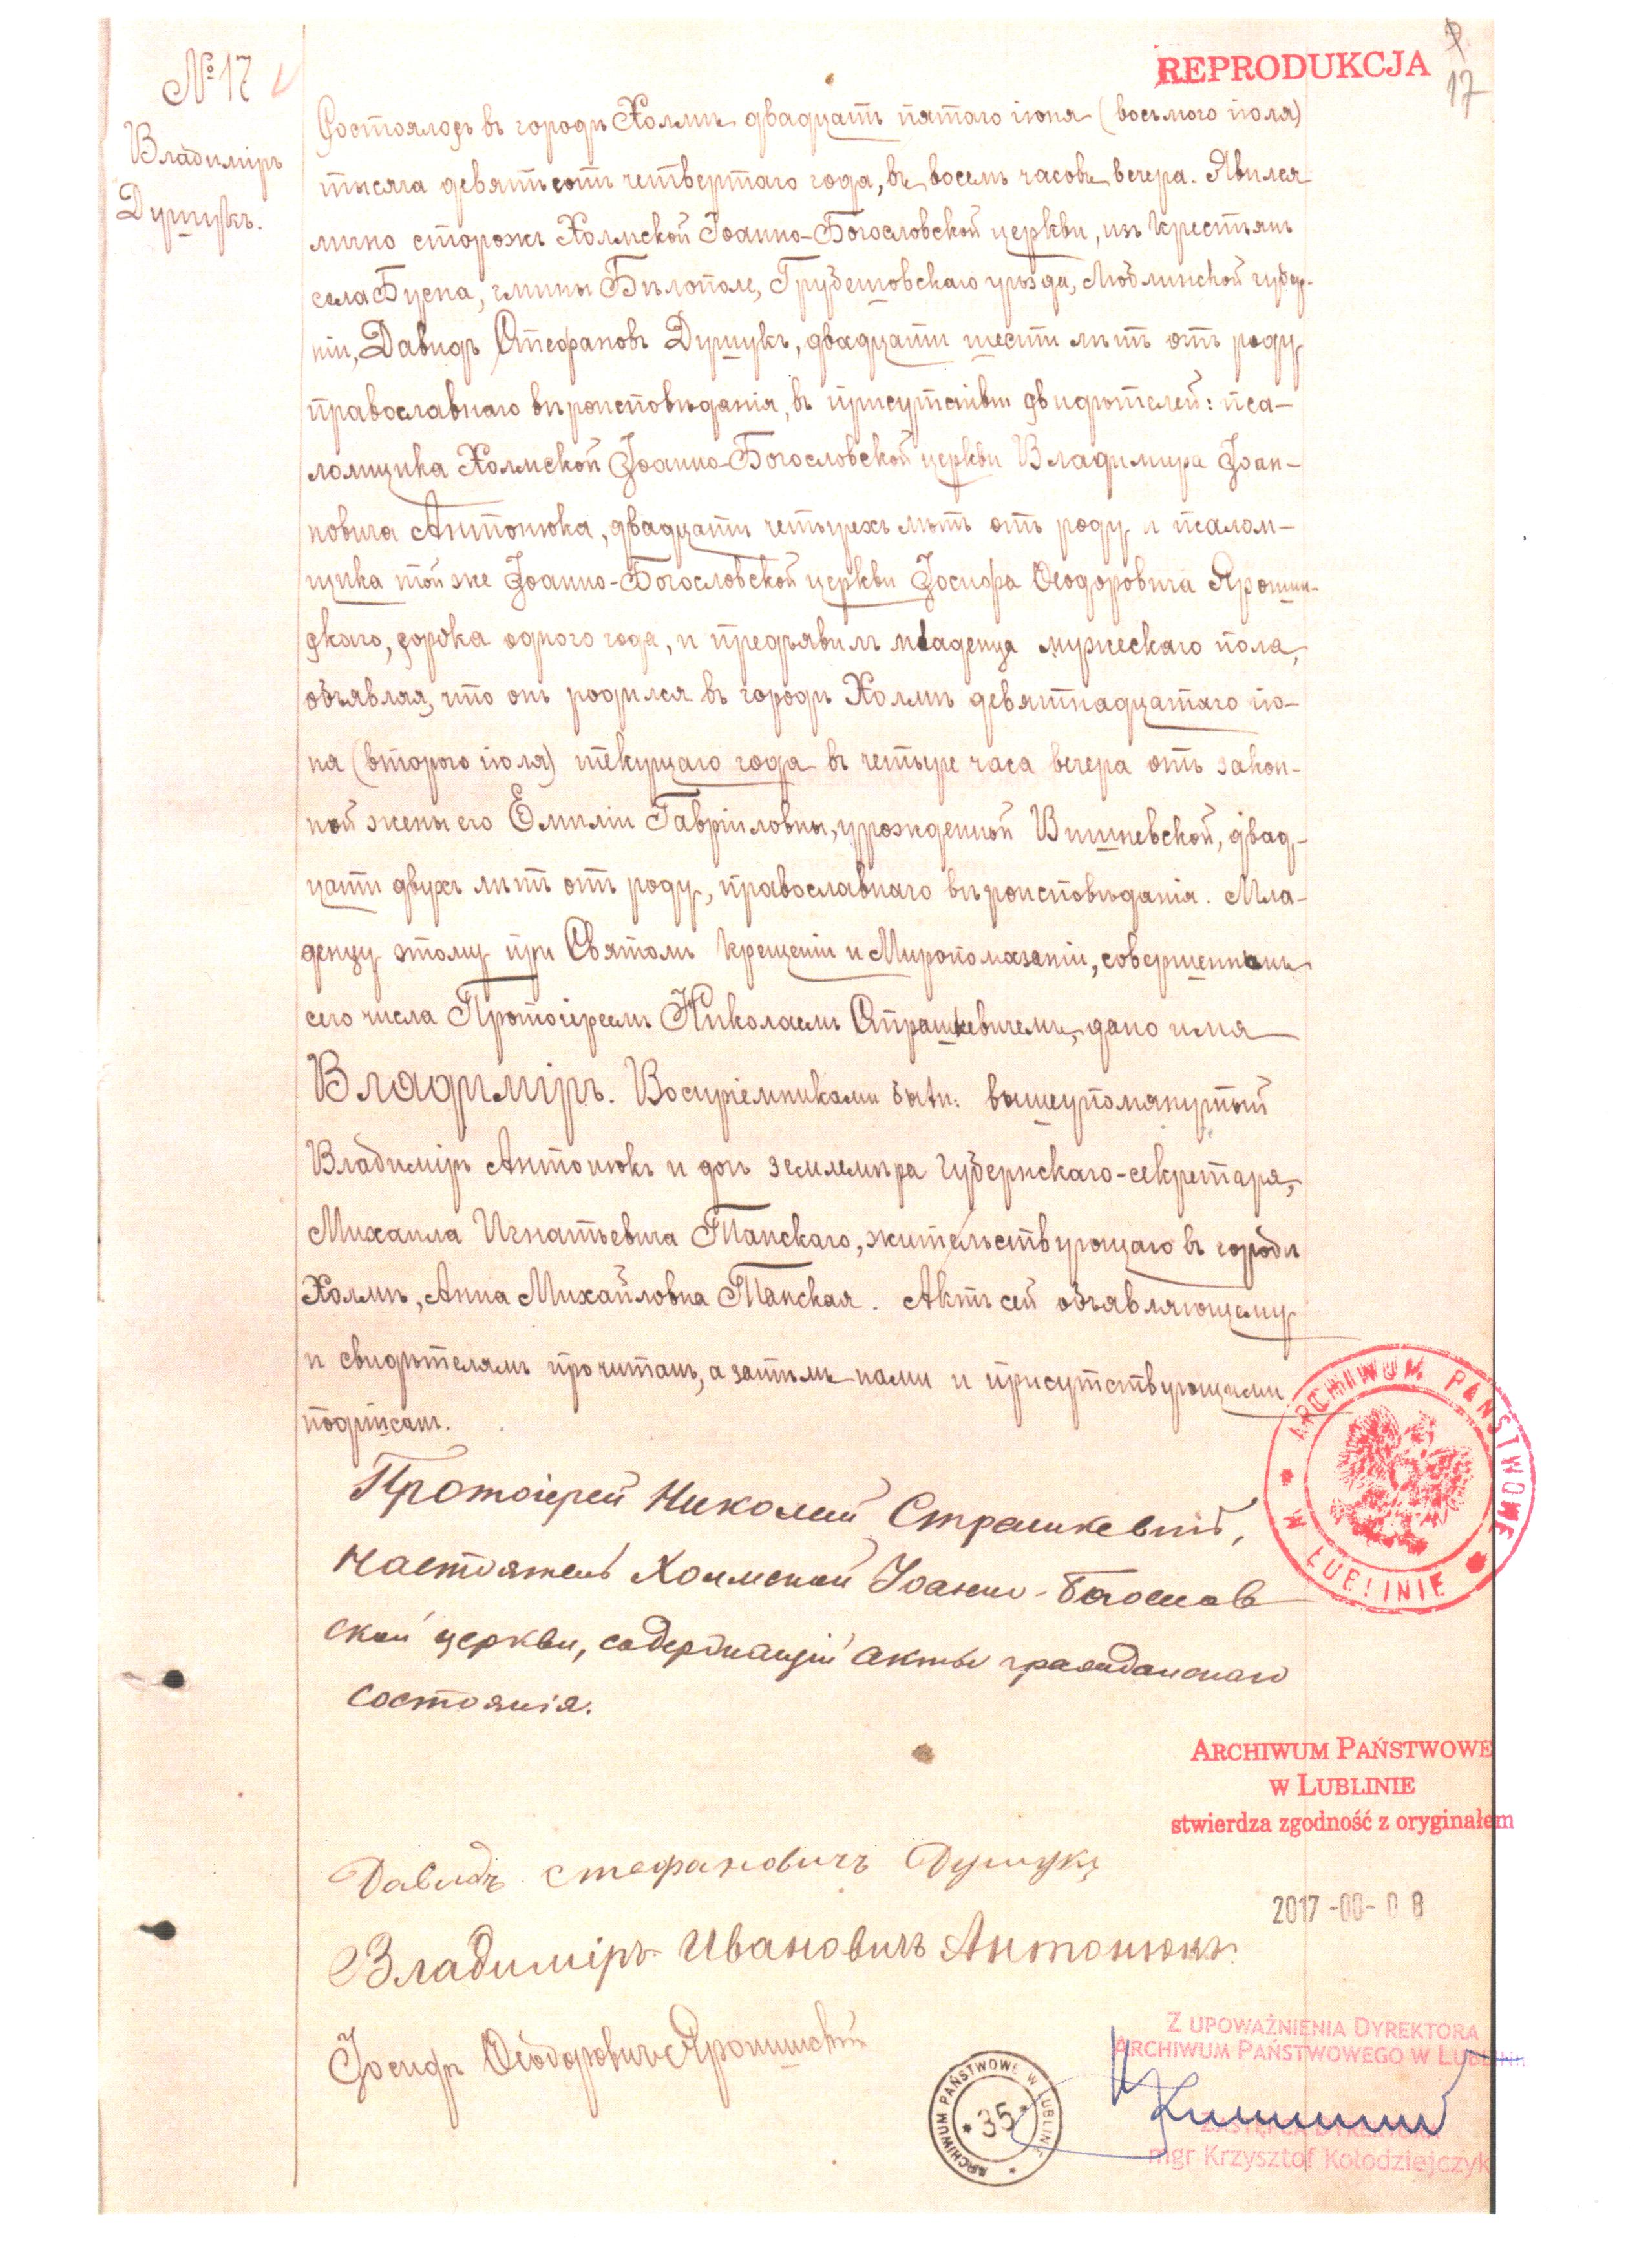 REPRODUKCJA
17
№ 17
Владиміръ
Душукъ.
Состоялось въ городѣ Холмѣ двадцать пятаго іюня (восьмого іюля)
тысяча девятьсотъ четвертаго года, въ восемь часовъ вечера. Явился
лично сторожъ Холмской Іоанно-Богословской церкви, изъ крестьянъ
села Бусна, гмины Бѣлополе, Грубешовскаго уѣзда, Люблинской губер-
ніи, Давидъ Стефановъ Душукъ, двадцати шести лѣтъ отъ роду
православнаго вѣроисповѣданія, въ присутствіи свидѣтелей: пса-
ломщика Холмской Іоанно-Богословской церкви Владимира Іоан-
новича Антонюка, двадцати четырехъ лѣтъ отъ роду и псалом-
щика той же Іоанно-Богословской церкви Іосифа Ѳеодоровича Ярошин-
скаго, сорока одного года, и предъявилъ младенца мужескаго пола,
объявляя, что онъ родился въ городѣ Холмѣ девятнадцатаго ію-
ня (второго іюля) текущаго года въ четыре часа вечера отъ закон-
ной жены его Емиліи Гавріиловны, урожденной Вишневской, двад-
цати двухъ лѣтъ отъ роду, православнаго вѣроисповѣданія. Мла-
денцу этому при Святомъ Крещеніи и Миропомазаніи, совершенномъ
сего числа Протоіереемъ Николаемъ Страшкевичемъ, дано имя
Владиміръ. Воспріемниками были: вышеупомянутый
Владиміръ Антонюкъ и дочь землемѣра Губернскаго-секретаря,
Михаила Игнатьевича Танскаго, жительствующаго въ городѣ
Холмѣ, Анна Михайловна Танская. Актъ сей объявляющему
и свидѣтелямъ прочитанъ, а затѣмъ нами и присутствующими
подписанъ.
Протоіерей Николай Страшкевичъ,
Настоятель Холмской Іоанно-Богослов
ской церкви, содержащій акты гражданскаго
состоянія.
ARCHIWUM PAŃSTWOWE
W LUBLINIE
ARCHIWUM PAŃSTWOWE
W LUBLINIE
stwierdza zgodność z oryginałem
Давидъ Стефановичъ Душукъ
2017 -08- 08
Владиміръ Ивановичъ Антонюкъ.
Іосифъ Ѳеодоровичъ Ярошинскій
Z UPOWAŻNIENIA DYREKTORA
ARCHIWUM PAŃSTWOWEGO W LUBLINIE
ARCHIWUM PAŃSTWOWE W LUBLINIE
35
ZASTĘPCA DYREKTORA
mgr Krzysztof Kołodziejczyk